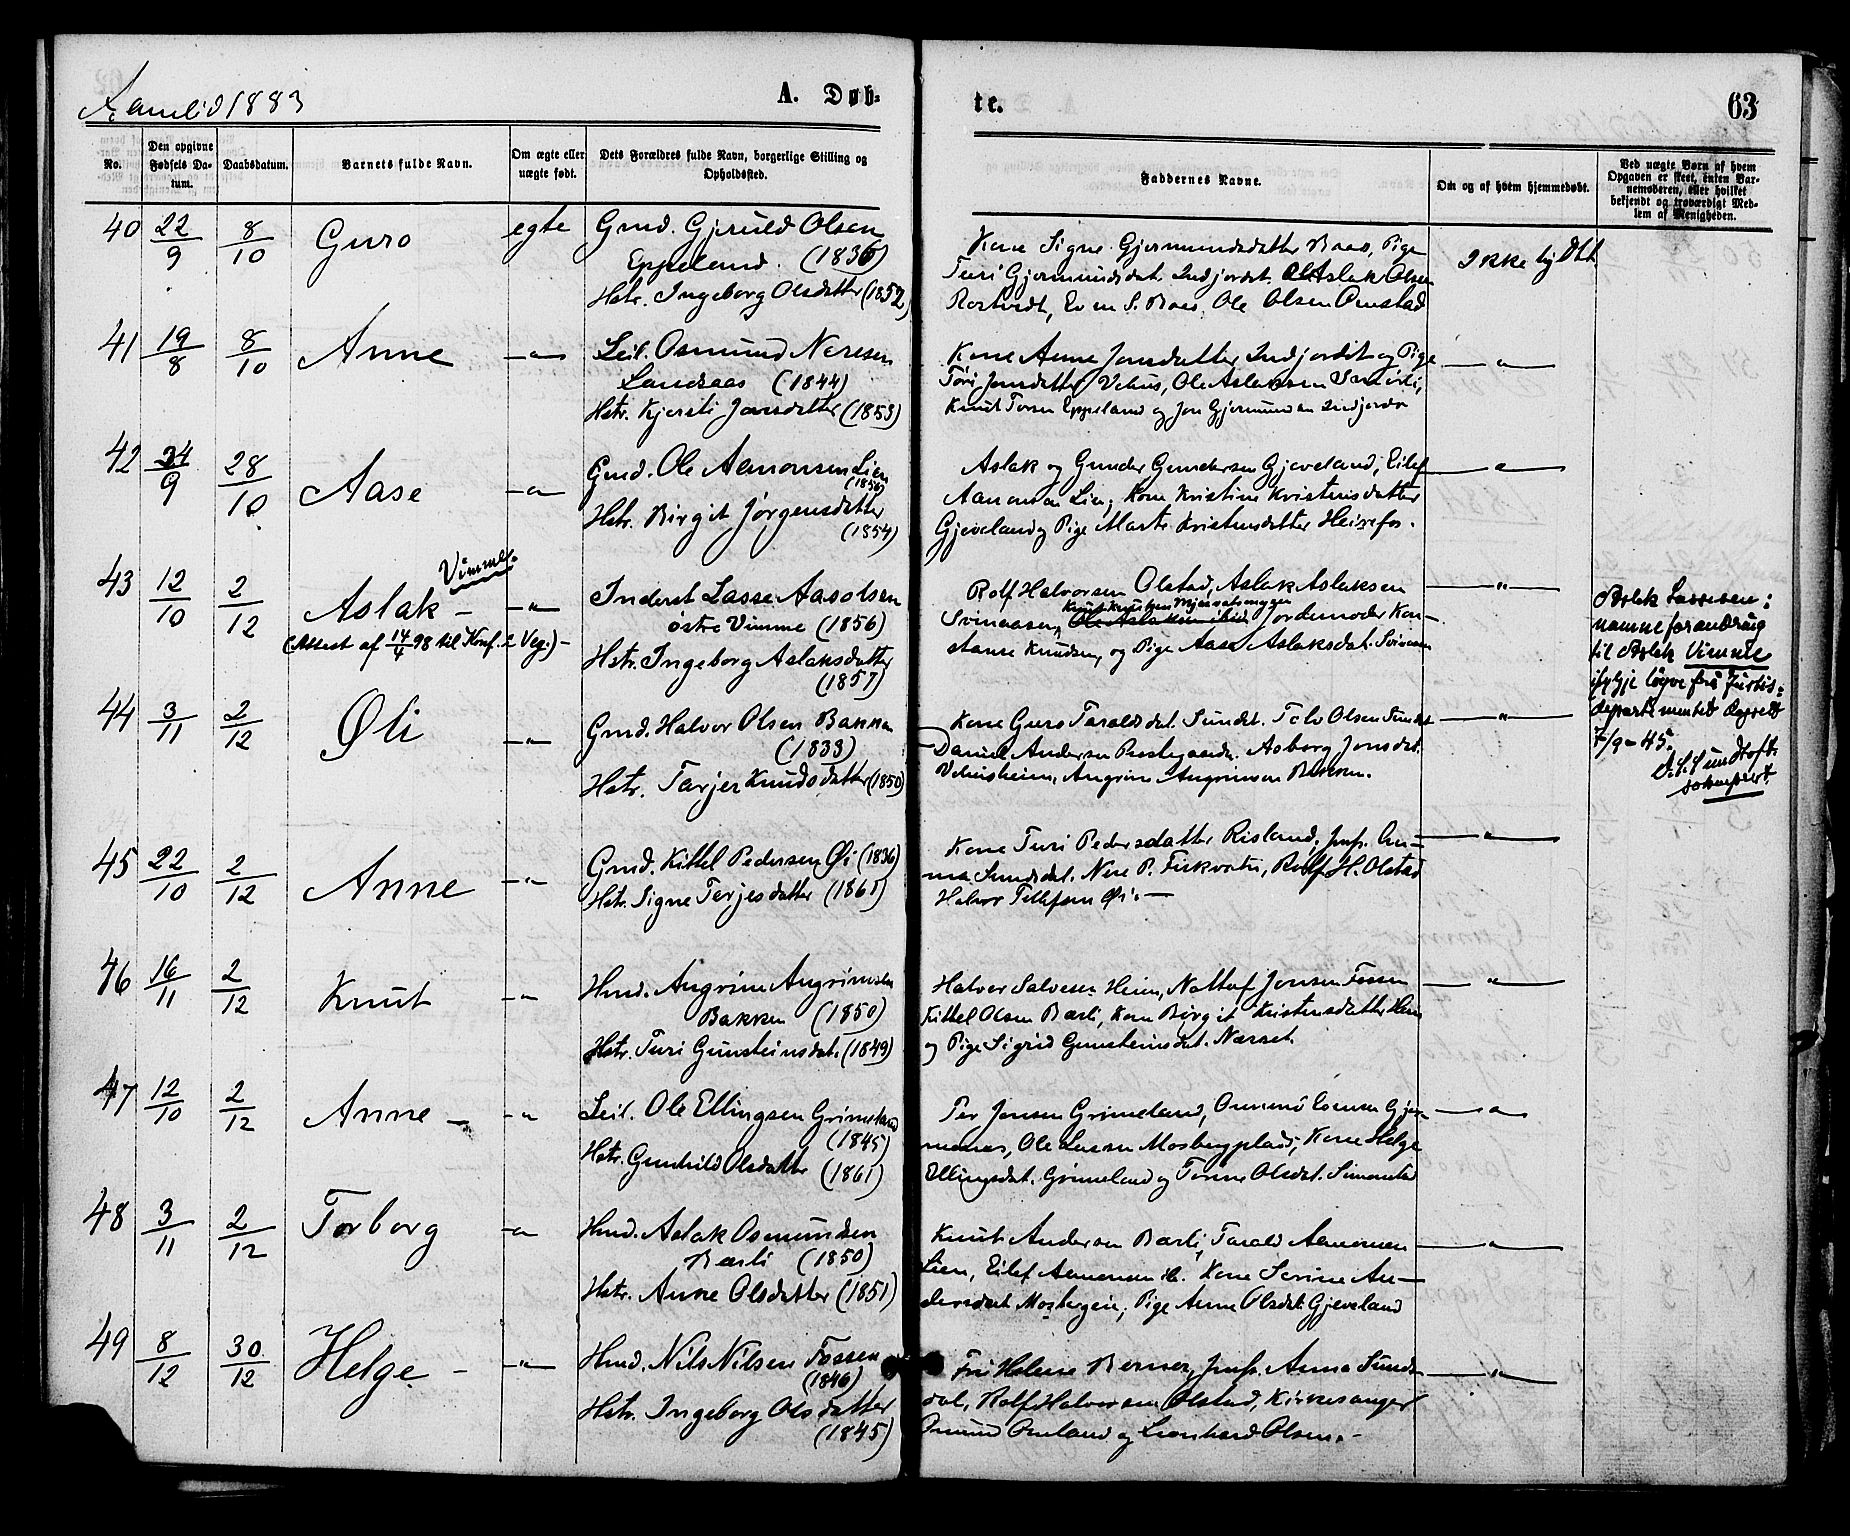 Aamlid 1883
A. Døb-
te.
63
No.
Den opgivne Fødsels Da-
tum.
Daabsdatum.
Barnets fulde Navn.
Om ægte eller uægte født.
Dets Forældres fulde Navn, borgerlige Stilling og Opholdssted.
Faddernes Navne.
Om og af hvem hjemmedøbt.
Ved uægte Børn af hvem
Opgaven er skeet, enten Bar-
nemoderen, eller hvilket
bekjendt og troværdigt Med-
lem af Menigheden.
40 22/9 8/10 Guro egte Gmd. Gjeruld Olsen
Eppeland. (1836)
Hstr. Ingeborg Olsdatter (1852)
Kone Signe Gjermundsdatter Baas, Pige
Turi Gjermundsdat. Indjordet. Aslak Olsen
Rostvedt, Even S. Baas, Ole Olsen Omstad
Ikke hj.dbt.
41 19/8 8/10 Anne -"- Leil. Osmund Neresen
Landsaas (1844)
Hstr. Kjersti Jonsdatter (1853)
Kone Anne Jonsdatter Indjordet og Pige
Turi Jonsdatter Vehus, Ole Aslaksen
Knut Torsen Eppeland og Jon Gjermundsen Indjorde
-"-
42 24/9 28/10 Aase -"- Gmd. Ole Aamonsen Lien
(1856)
Hstr. Birgit Jørgensdatter
(1854)
Aslak og Gunder Gundersen Gjeveland, Eilef
Aamonsen Lien, Kone Kristine Kristensdatter
Gjeveland og Pige Marte Kristensdatter Heirefos.
-"-
43 12/10 2/12 Aslak - Vimme. -"- Inderst Lasse Aasolsen
østre Vimme (1856)
(Attest af 14/4 98 til Konf. i Veg.) -
Hstr. Ingeborg Aslaksdatter
(1857)
Rolf Halvorsen Olstad, Aslak Aslaksen
Svinaasen, Ole Aslaksen ibid, Jordemoder Kon-
stanse Knudsen, og Pige Aase Aslaksdat. Svinaasen
-"-
Aslak Lassesen:
namneforandring
til Aslak Vimme
ifylgje løyve frå Justis-
departementet dagsett
7/9-45.
sokneprest.
44 3/11 2/12 Øli -"- Gmd. Halvor Olsen Bakken
(1833)
Hstr. Tarjer Knudsdatter (1850)
Kone Guro Taraldsdat. Sundet. Tolv Olsen Sundet
Daniel Andersen Prestegaarden. Asborg Jonsdat.
Vehusheien, Angrim Angrimsen Bakken.
-"-
45 22/10 2/12 Anne -"- Gmd. Kittel Pedersen Øi (1836)
Hstr. Signe Terjesdatter (1861)
Kone Turi Pedersdatter Risland, Jmfr. An-
na Sundsdal. Nere P. Firkvatn, Rolf H. Olstad
Halvor Tellefsen Øi. -
-"-
46 16/11 2/12 Knut -"- Hmd. Angrim Angrimsen
Bakken (1850)
Hstr. Turi Gunsteinsdat. (1849)
Halvor Salvesen Heim, Nottof Jonsen Fossen
Kittel Olsen Bærli, Kone Birgit Kristensdatter Heim
og Pige Sigrid Gunsteinsdat. Næsset.
-"-
47 12/10 2/12 Anne - -"- Leil. Ole Ellingsen Grimeland
(1845)
Hstr. Gunhild Olsdatter (1861)
Per Jonsen Grimeland, Osmund
Ole Larsen Mosbergplads, Kone Helge
Ellingsdat. Grimeland og Torine Olsdat. Simonstad
-"-
48 3/11 2/12 Torborg -"- Hmd. Aslak Osmundsen
Bærli (1850)
Hstr. Anne Olsdatter (1851)
Knut Andersen Bærli, Tarald Aamonsen
Lien, Eilef Aamonsen ib. Kone Serine An-
dersdat. Mosbergeie, Pige Anne Olsdat. Gjeveland
-"-
49 8/12 30/12 Helge - -"- Hmd. Nils Nilsen Fossen
(1846)
Hstr. Ingeborg Olsdatter
(1845)
Fru Helene Berner, Jmfr. Anna Sunds-
dal, Rolf Halvorsen Olstad, Kirkesanger
Omund Omland og Leonhard Olsen. -
-"-